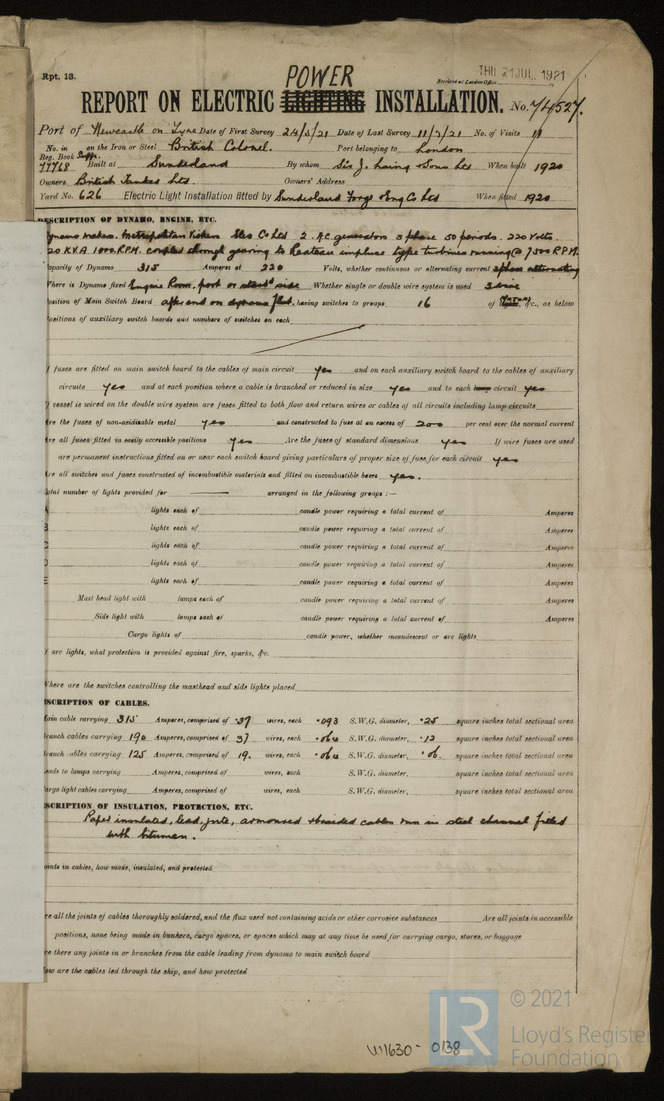 Rpt. 13.
POWER
THU 21 JUL. 1921
Received at London Office
REPORT ON ELECTRIC LIGHTING INSTALLATION. No. 74527.
Port of Newcastle on Tyne Date of First Survey 24/3/21 Date of Last Survey 11/7/21 No. of Visits 11
No. in on the Iron or Steel British Colonel. Port belonging to London
Reg. Book Supp.
77768 Built at Sunderland By whom Sir J. Laing & Sons Ltd When built 1920
Owners British Tanker Ltd Owners' Address
Yard No. 626 Electric Light Installation fitted by Sunderland Forge & Eng Co Ltd When fitted 1920
DESCRIPTION OF DYNAMO, ENGINE, ETC.
Dynamo makers. Metropolitan Vickers Elec Co Ltd 2 A.C. generators 3 phase 50 periods. 220 Volts.
120 K.V.A 1000 R.P.M. coupled through gearing to Rateau impulse type turbines running @ 7500 R.P.M.
apacity of Dynamo 315 Amperes at 220 Volts, whether continuous or alternating current 3 phase alternating
Where is Dynamo fixed Engine Room, port or starbd side Whether single or double wire system is used 3 wire
osition of Main Switch Board aft end on dynamo flat, having switches to groups 16 of Motors &c., as below
ositions of auxiliary switch boards and numbers of switches on each
f fuses are fitted on main switch board to the cables of main circuit yes and on each auxiliary switch board to the cables of auxiliary
circuits yes and at each position where a cable is branched or reduced in size yes and to each lamp circuit yes
f vessel is wired on the double wire system are fuses fitted to both flow and return wires or cables of all circuits including lamp circuits
re the fuses of non-oxidizable metal yes and constructed to fuse at an excess of 200 per cent over the normal current
re all fuses fitted in easily accessible positions yes Are the fuses of standard dimensions yes If wire fuses are used
are permanent instructions fitted on or near each switch board giving particulars of proper size of fuse for each circuit yes
re all switches and fuses constructed of incombustible materials and fitted on incombustible bases yes.
otal number of lights provided for arranged in the following groups :—
A lights each of candle power requiring a total current of Amperes
B lights each of candle power requiring a total current of Amperes
C lights each of candle power requiring a total current of Amperes
D lights each of candle power requiring a total current of Amperes
E lights each of candle power requiring a total current of Amperes
Mast head light with lamps each of candle power requiring a total current of Amperes
Side light with lamps each of candle power requiring a total current of Amperes
Cargo lights of candle power, whether incandescent or arc lights
f arc lights, what protection is provided against fire, sparks, &c.
Where are the switches controlling the masthead and side lights placed
SCRIPTION OF CABLES.
ain cable carrying 315 Amperes, comprised of 37 wires, each .093 S.W.G. diameter, .25 square inches total sectional area
ranch cables carrying 190 Amperes, comprised of 37 wires, each .064 S.W.G. diameter, .12 square inches total sectional area
ranch cables carrying 125 Amperes, comprised of 19. wires, each .064 S.W.G. diameter, .06. square inches total sectional area
eads to lamps carrying Amperes, comprised of wires, each S.W.G. diameter, square inches total sectional area
argo light cables carrying Amperes, comprised of wires, each S.W.G. diameter, square inches total sectional area
SCRIPTION OF INSULATION, PROTECTION, ETC.
Paper insulated, lead, jute, armoured & braided cables run in steel channel filled
with bitumen.
oints in cables, how made, insulated, and protected
re all the joints of cables thoroughly soldered, and the flux used not containing acids or other corrosive substances Are all joints in accessible
positions, none being made in bunkers, cargo spaces, or spaces which may at any time be used for carrying cargo, stores, or baggage
re there any joints in or branches from the cable leading from dynamo to main switch board
ow are the cables led through the ship, and how protected
W1630-0138
LR
© 2021
Lloyd's Register
Foundation